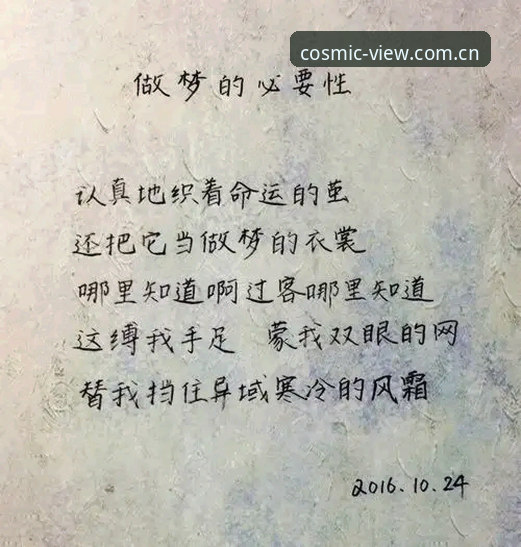 cosmic-view.com.cn
做梦的必要性
认真地织着命运的茧
还把它当做梦的衣裳
哪里知道啊过客哪里知道
这缚我手足 蒙我双眼的网
替我挡住异域寒冷的风霜
2016.10.24